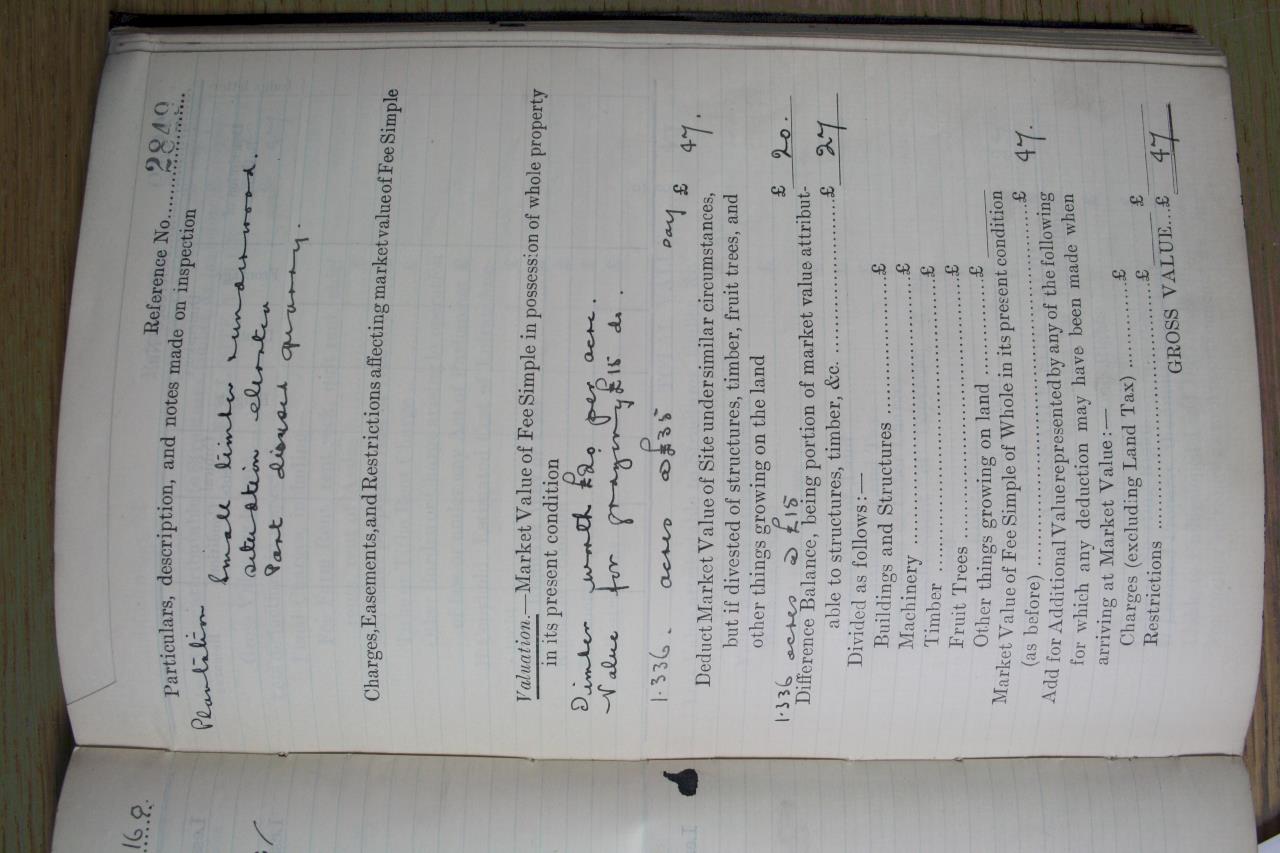 Reference No. 2840
Particulars, description, and notes made on inspection
Plantation
Small timber & underwood.
situation elevated
Part disused quarry.
Charges, Easements, and Restrictions affecting market value of Fee Simple
Valuation.—Market Value of Fee Simple in possession of whole property
in its present condition
Timber worth £20 per acre.
Value for grazing £15 do.
1.336. acres @ £35 say £ 47.
Deduct Market Value of Site under similar circumstances,
but if divested of structures, timber, fruit trees, and
other things growing on the land £ 20.
1.336 acres @ £15
Difference Balance, being portion of market value attribut-
able to structures, timber, &c. £ 27
Divided as follows:—
Buildings and Structures £
Machinery £
Timber £
Fruit Trees £
Other things growing on land £
Market Value of Fee Simple of Whole in its present condition
(as before) £ 47.
Add for Additional Value represented by any of the following
for which any deduction may have been made when
arriving at Market Value:—
Charges (excluding Land Tax) £
Restrictions £ £
GROSS VALUE...£ 47